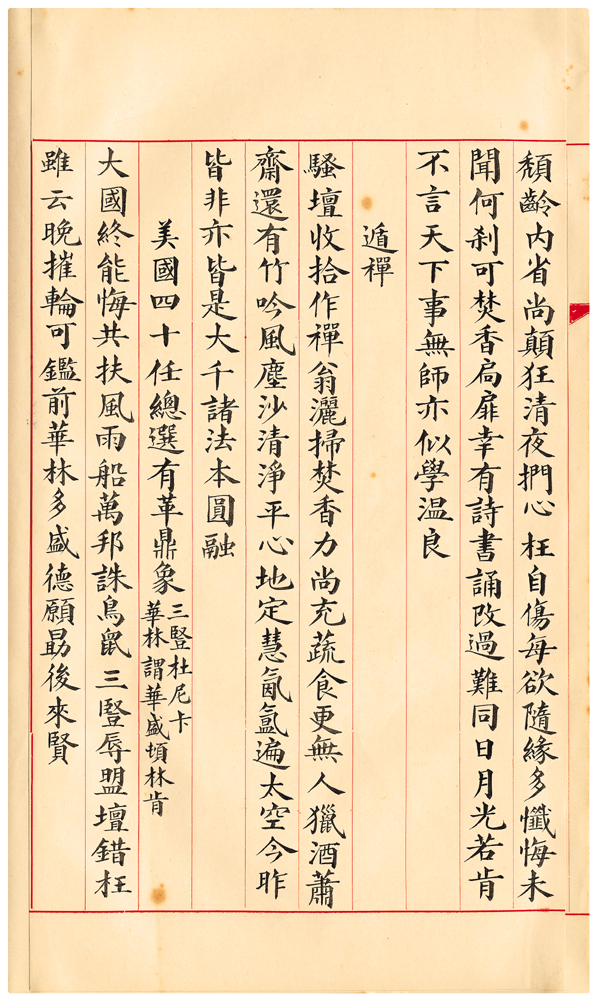 頹齡內省尚顛狂清夜捫心枉自傷每欲隨緣多懺悔未
聞何刹可焚香扃扉幸有詩書誦改過難同日月光若肯
不言天下事無師亦似學温良
遁禪
騷壇收拾作禪翁灑掃焚香力尚充蔬食更無人獵酒蕭
齋還有竹吟風塵沙清淨平心地定慧氤氳遍太空今昨
皆非亦皆是大千諸法本圓融
美國四十任總選有革鼎象
三豎杜尼卡
華林謂華盛頓林肯
大國終能悔共扶風雨船萬邦誅鳥鼠三豎辱盟壇錯枉
雖云晚摧輪可鑑前華林多盛德願勗後來賢